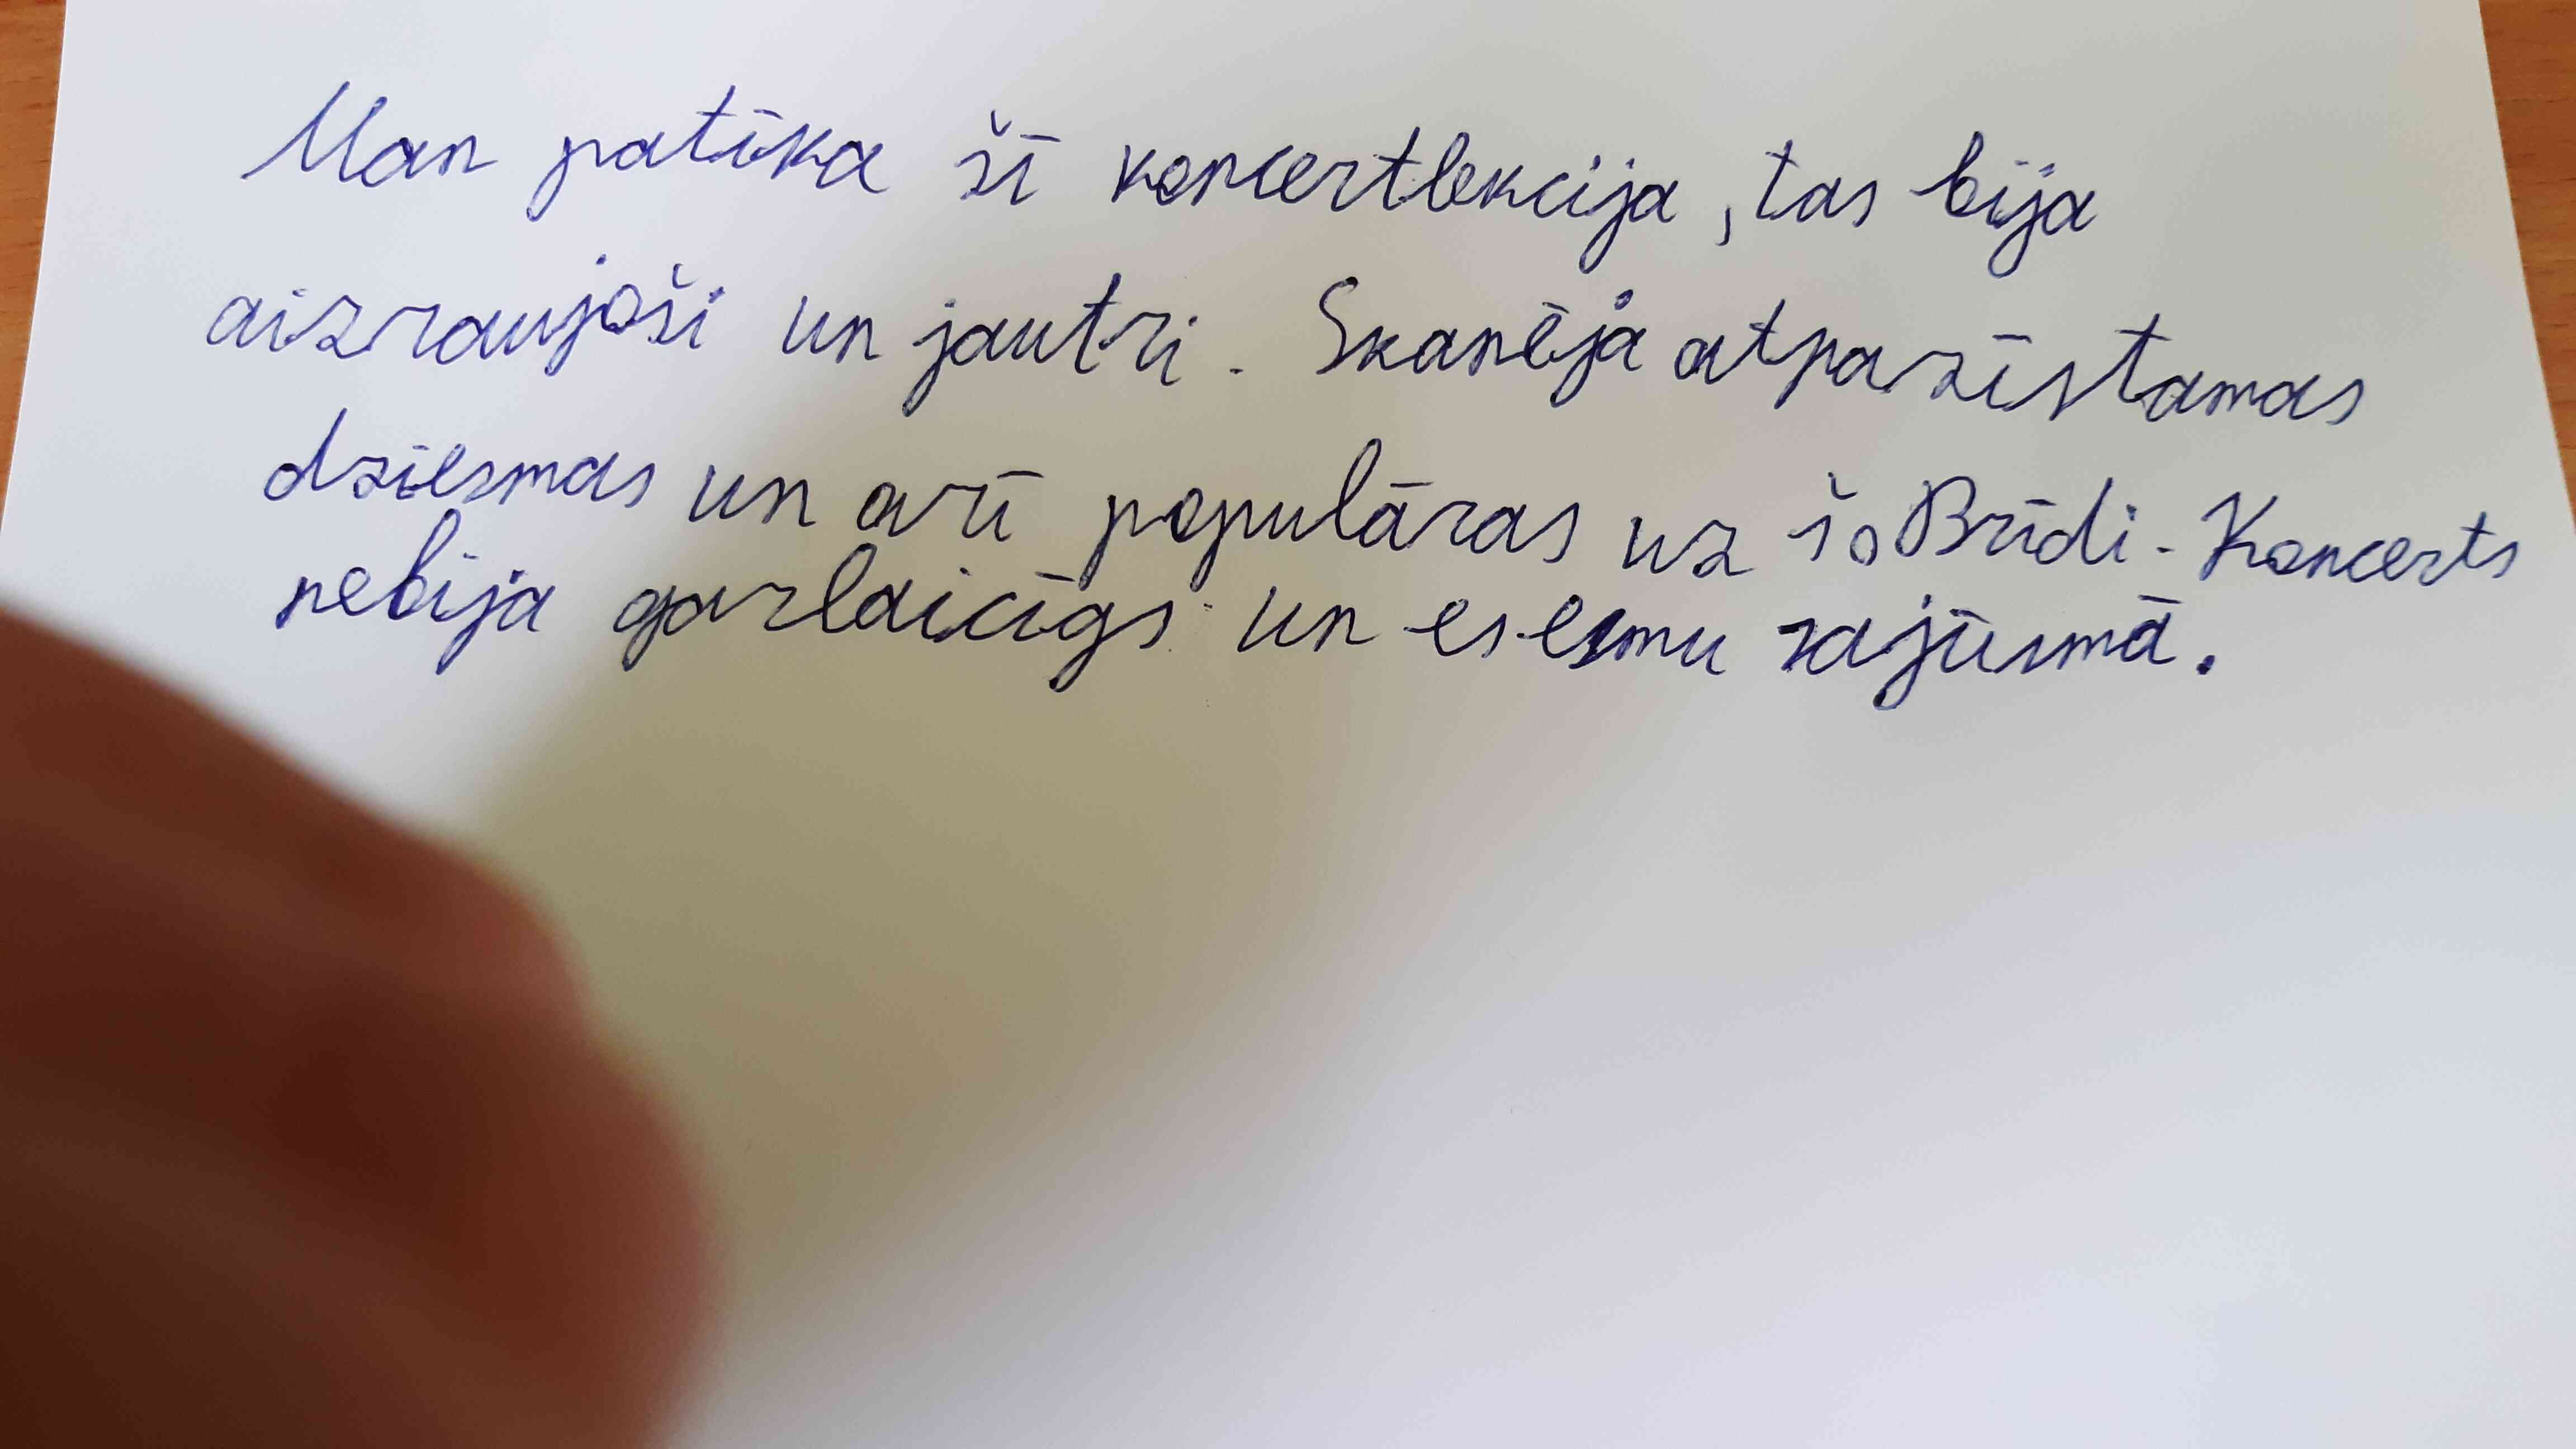 Man patīka šī koncertlekcija, tas bija
aizraujoši un jautri. Skanēja atpazīstamas
dziesmas un arī populāras uz šo Brīdi. Koncerts
nebija garlaicīgs un es esmu sajūsmā.